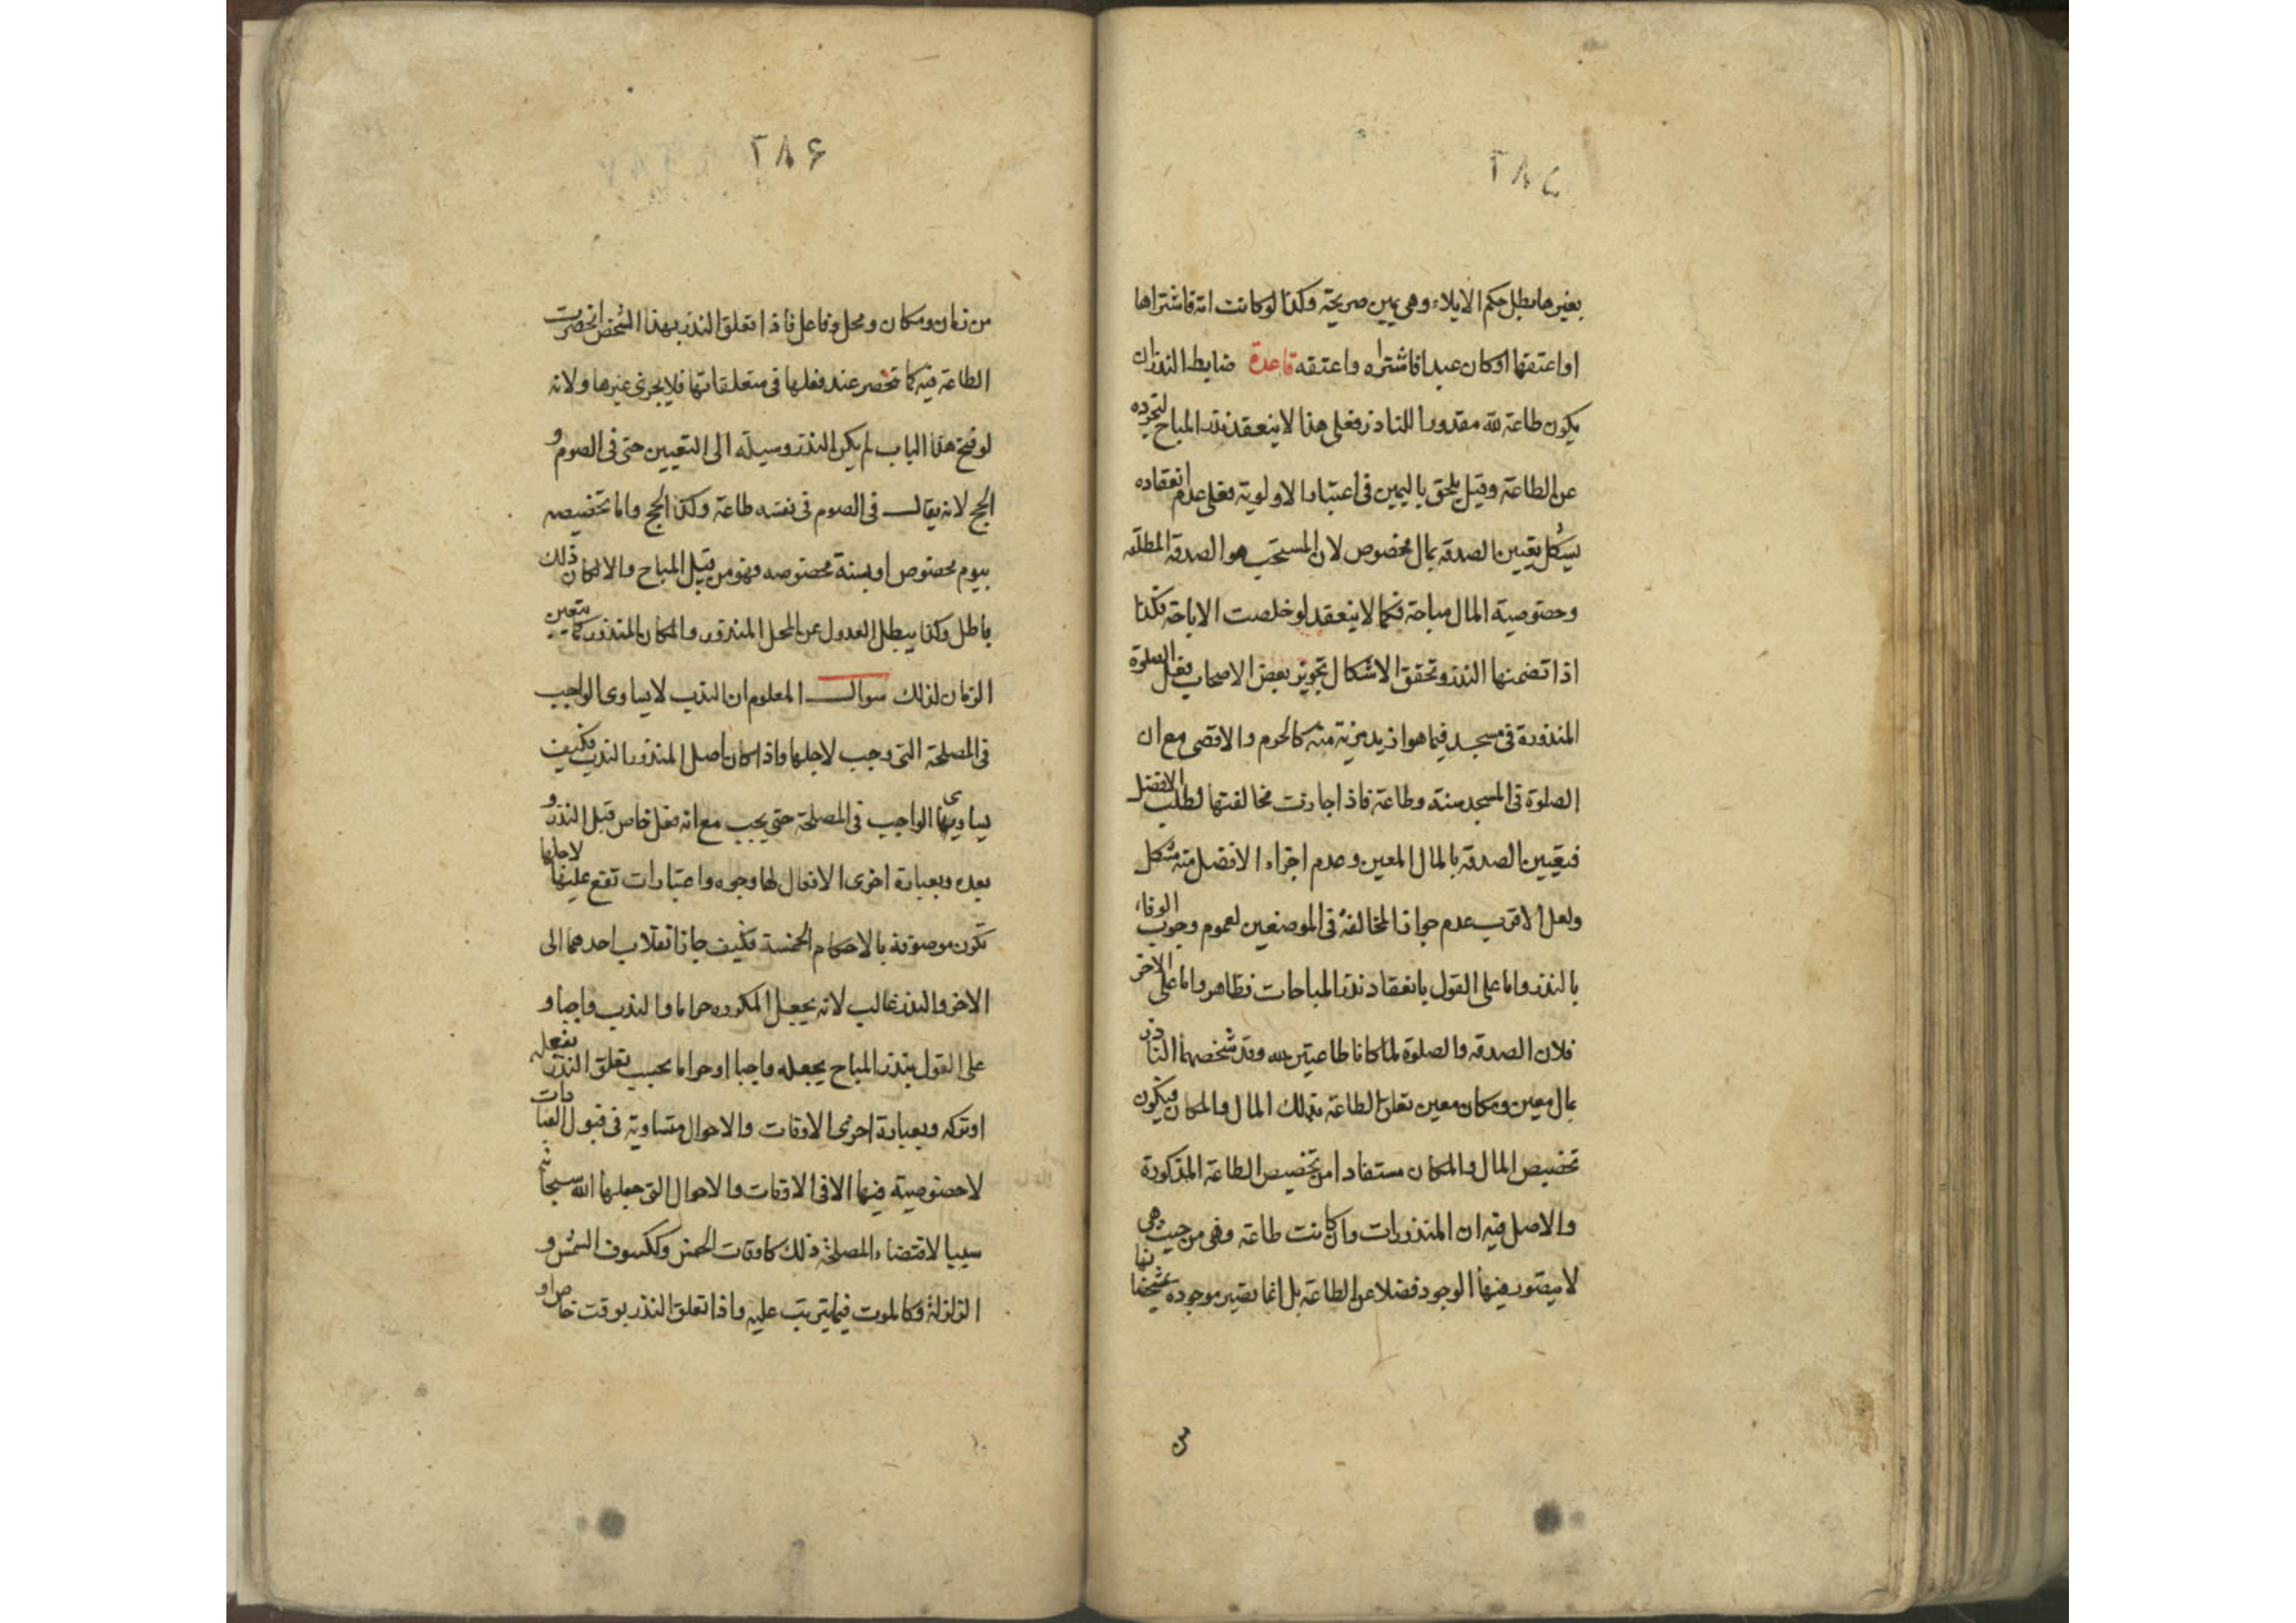 ٢٨٥
بغيرها بطل حكم الايلاء وهي يمين صريحة وكذا لو كانت امة فاشتراها
او اعتقها او كان عبدا فاشتراه واعتقه قاعدة ضابط النذر ان
يكون طاعة لله مقدورا للناذر فعلى هذا لا ينعقد نذر المباح لتجرده
عن الطاعة وقيل يلحق باليمين في اعتبار الاولوية فعلى عدم انعقاده
يشكل تعيين الصدقة بمال مخصوص لان المستحب هو الصدقة المطلقة
وخصوصية المال مباحة فكما لا ينعقد لو خلصت الاباحة فكذا
اذا تضمنها النذر وتحقق الاشكال تجويز بعض الاصحاب فعل الصلوة
المنذورة في مسجد فيما هو ازيد مزية منه كالحرم والاقصى مع ان
الصلوة في المسجد سنة وطاعة فاذا جازت مخالفتها لطلب الافضل
فتعيين الصدقة بالمال المعين وعدم اجزاء الافضل منه مشكل
ولعل الاقرب عدم جواز المخالفة في الموضعين لعموم وجوب الوفاء
بالنذر واما على القول بانعقاد نذر المباحات فظاهر واما على الاخر
فلان الصدقة والصلوة لما كانا طاعتين لله وقد شخصهما الناذر
بمال معين ومكان معين تعلق الطاعة بذلك المال والمكان فيكون
تخصيص المال والمكان مستفادا من تخصيص الطاعة المذكورة
والاصل فيه ان المنذورات وان كانت طاعة وهي من حيث هي
لا يتصور فيها الوجود فضلا عن الطاعة بل انما تصير موجودة بمشخصاتها
من
٢٨۶
من زمان ومكان ومحل وفاعل فاذا تعلق النذر بهذا الشخص انحصرت
الطاعة فيه كما تنحصر عند فعلها في متعلقاتها فلا يجزى غيرها ولانه
لو فتح هذا الباب لم يكن النذر وسيلة الى التعيين حتى في الصوم و
الحج لانه يقال في الصوم في نفسه طاعة وكذا الحج واما تخصيصه
بيوم مخصوص او بسنة مخصوصه فهو من قبيل المباح والا لكان ذلك
باطل وكذا يبطل العدول عن المحل المنذور والمكان المنذور كما يتعين
الزمان لذلك سوال المعلوم ان الندب لا يساوى الواجب
في المصلحة التى وجب لاجلها واذا كان اصل المنذور الندب فكيف
يساوى الواجب في المصلحة حتى يجب مع انه فعل خاص قبل النذر و
بعده وبعبارة اخرى الافعال لها وجوه واعتبارات تقع عليها لاجلها
تكون موصوفة بالاحكام الخمسة فكيف جاز انقلاب احدهما الى
الاخر والنذر غالب لانه يجعل المكروه حراما والندب واجبا و
على القول بنذر المباح يجعله واجبا او حراما بحسب تعلق النذر بفعله
او تركه وبعبارة اخرى الاوقات والاحوال متساوية في قبول العبادات
لا خصوصية فيها الا في الاوقات والاحوال التى جعلها الله سبحانه
سببا لاقتضاء المصلحة ذلك كاوقات الخمس وككسوف الشمس و
الزلزلة وكالموت فيما يترتب عليه واذا تعلق النذر بوقت خاص او